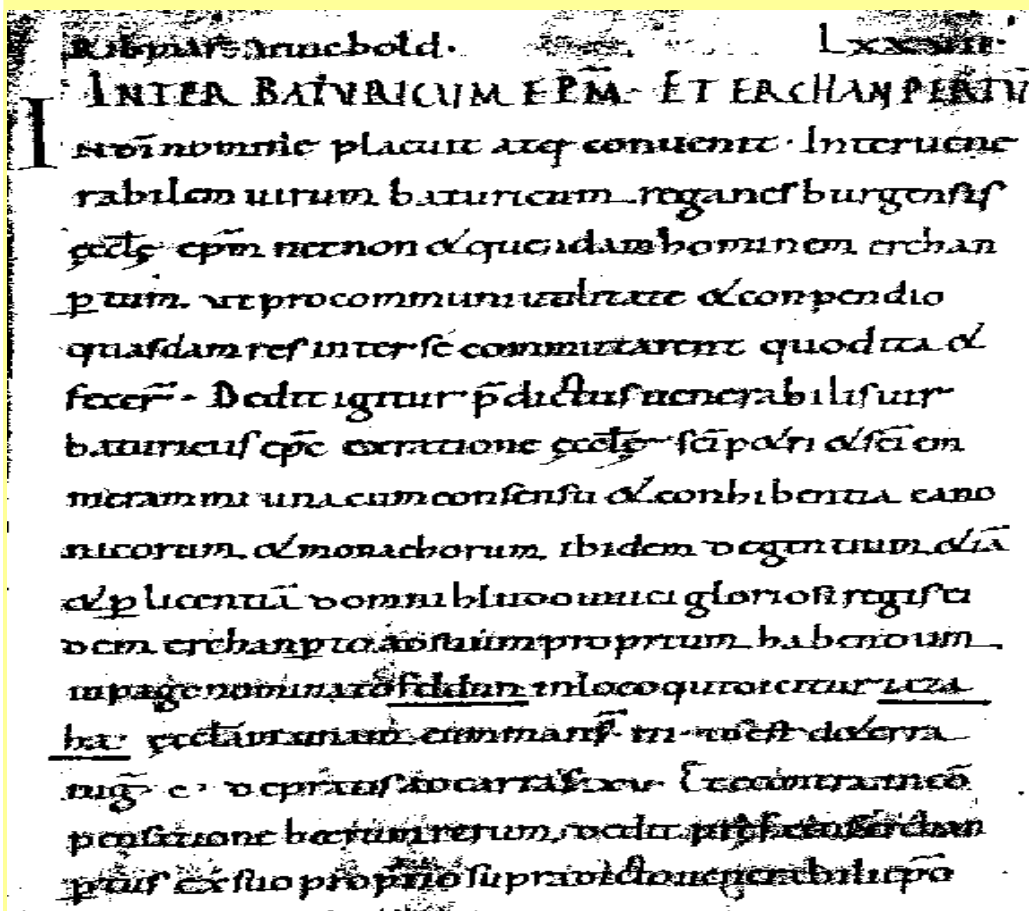 Ribpald. uuinebold. Lxxxuii.
INTER BATVRICUM EPM. ET ERCHANPERTU
IN DI nomine placuit atq; conuenit. Interuene
rabilem uirum baturicum reganesburgensis
ęccłę epm necnon & quendam hominem erchan
ptum. ut pro communi utilitate & conpendio
quasdam res inter se commutarent quod ita &
fecer. Dedit igitur pdictus uenerabilis uir
baturicus epc ex ratione ęccłę sci p&ri & sci em
merammi una cum consensu & conhibentia cano
nicorum & monachorum ibidem degentium & iā
& p licentiā domni hludouuici gloriosi regis ei
dem erchanpto ad suum proprium habendum
in pago nominato in loco qui dicitur
ha. ęccłam unam cum mans. III. id est de terra
iug. c. de pratis ad carras. xv. Et econtra in co
pensatione harum rerum. dedit erchan
ptus ex suo proprio supradicto uenerabili epo